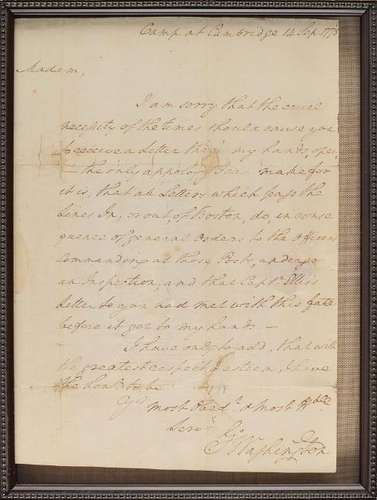 Camp at Cambridge 14 Sep. 1775
Madam,
I am sorry that the cruel
necessity of the times should cause you
to receive a Letter thro' my hands, open
— the only apology I can make for
it is, that all Letters which pass the
Lines In, or out, of Boston, do in conse
quence of general Orders to the Officers
commanding at those Posts, undergo
an Inspection, and that Capt. Ellis's
letter to you had met with this fate
before it got to my hands. —
I have only to add, that with
the greatest respect
the honr. to be
Yr. most Obedt. & most Hble
Servt.
Go Washington